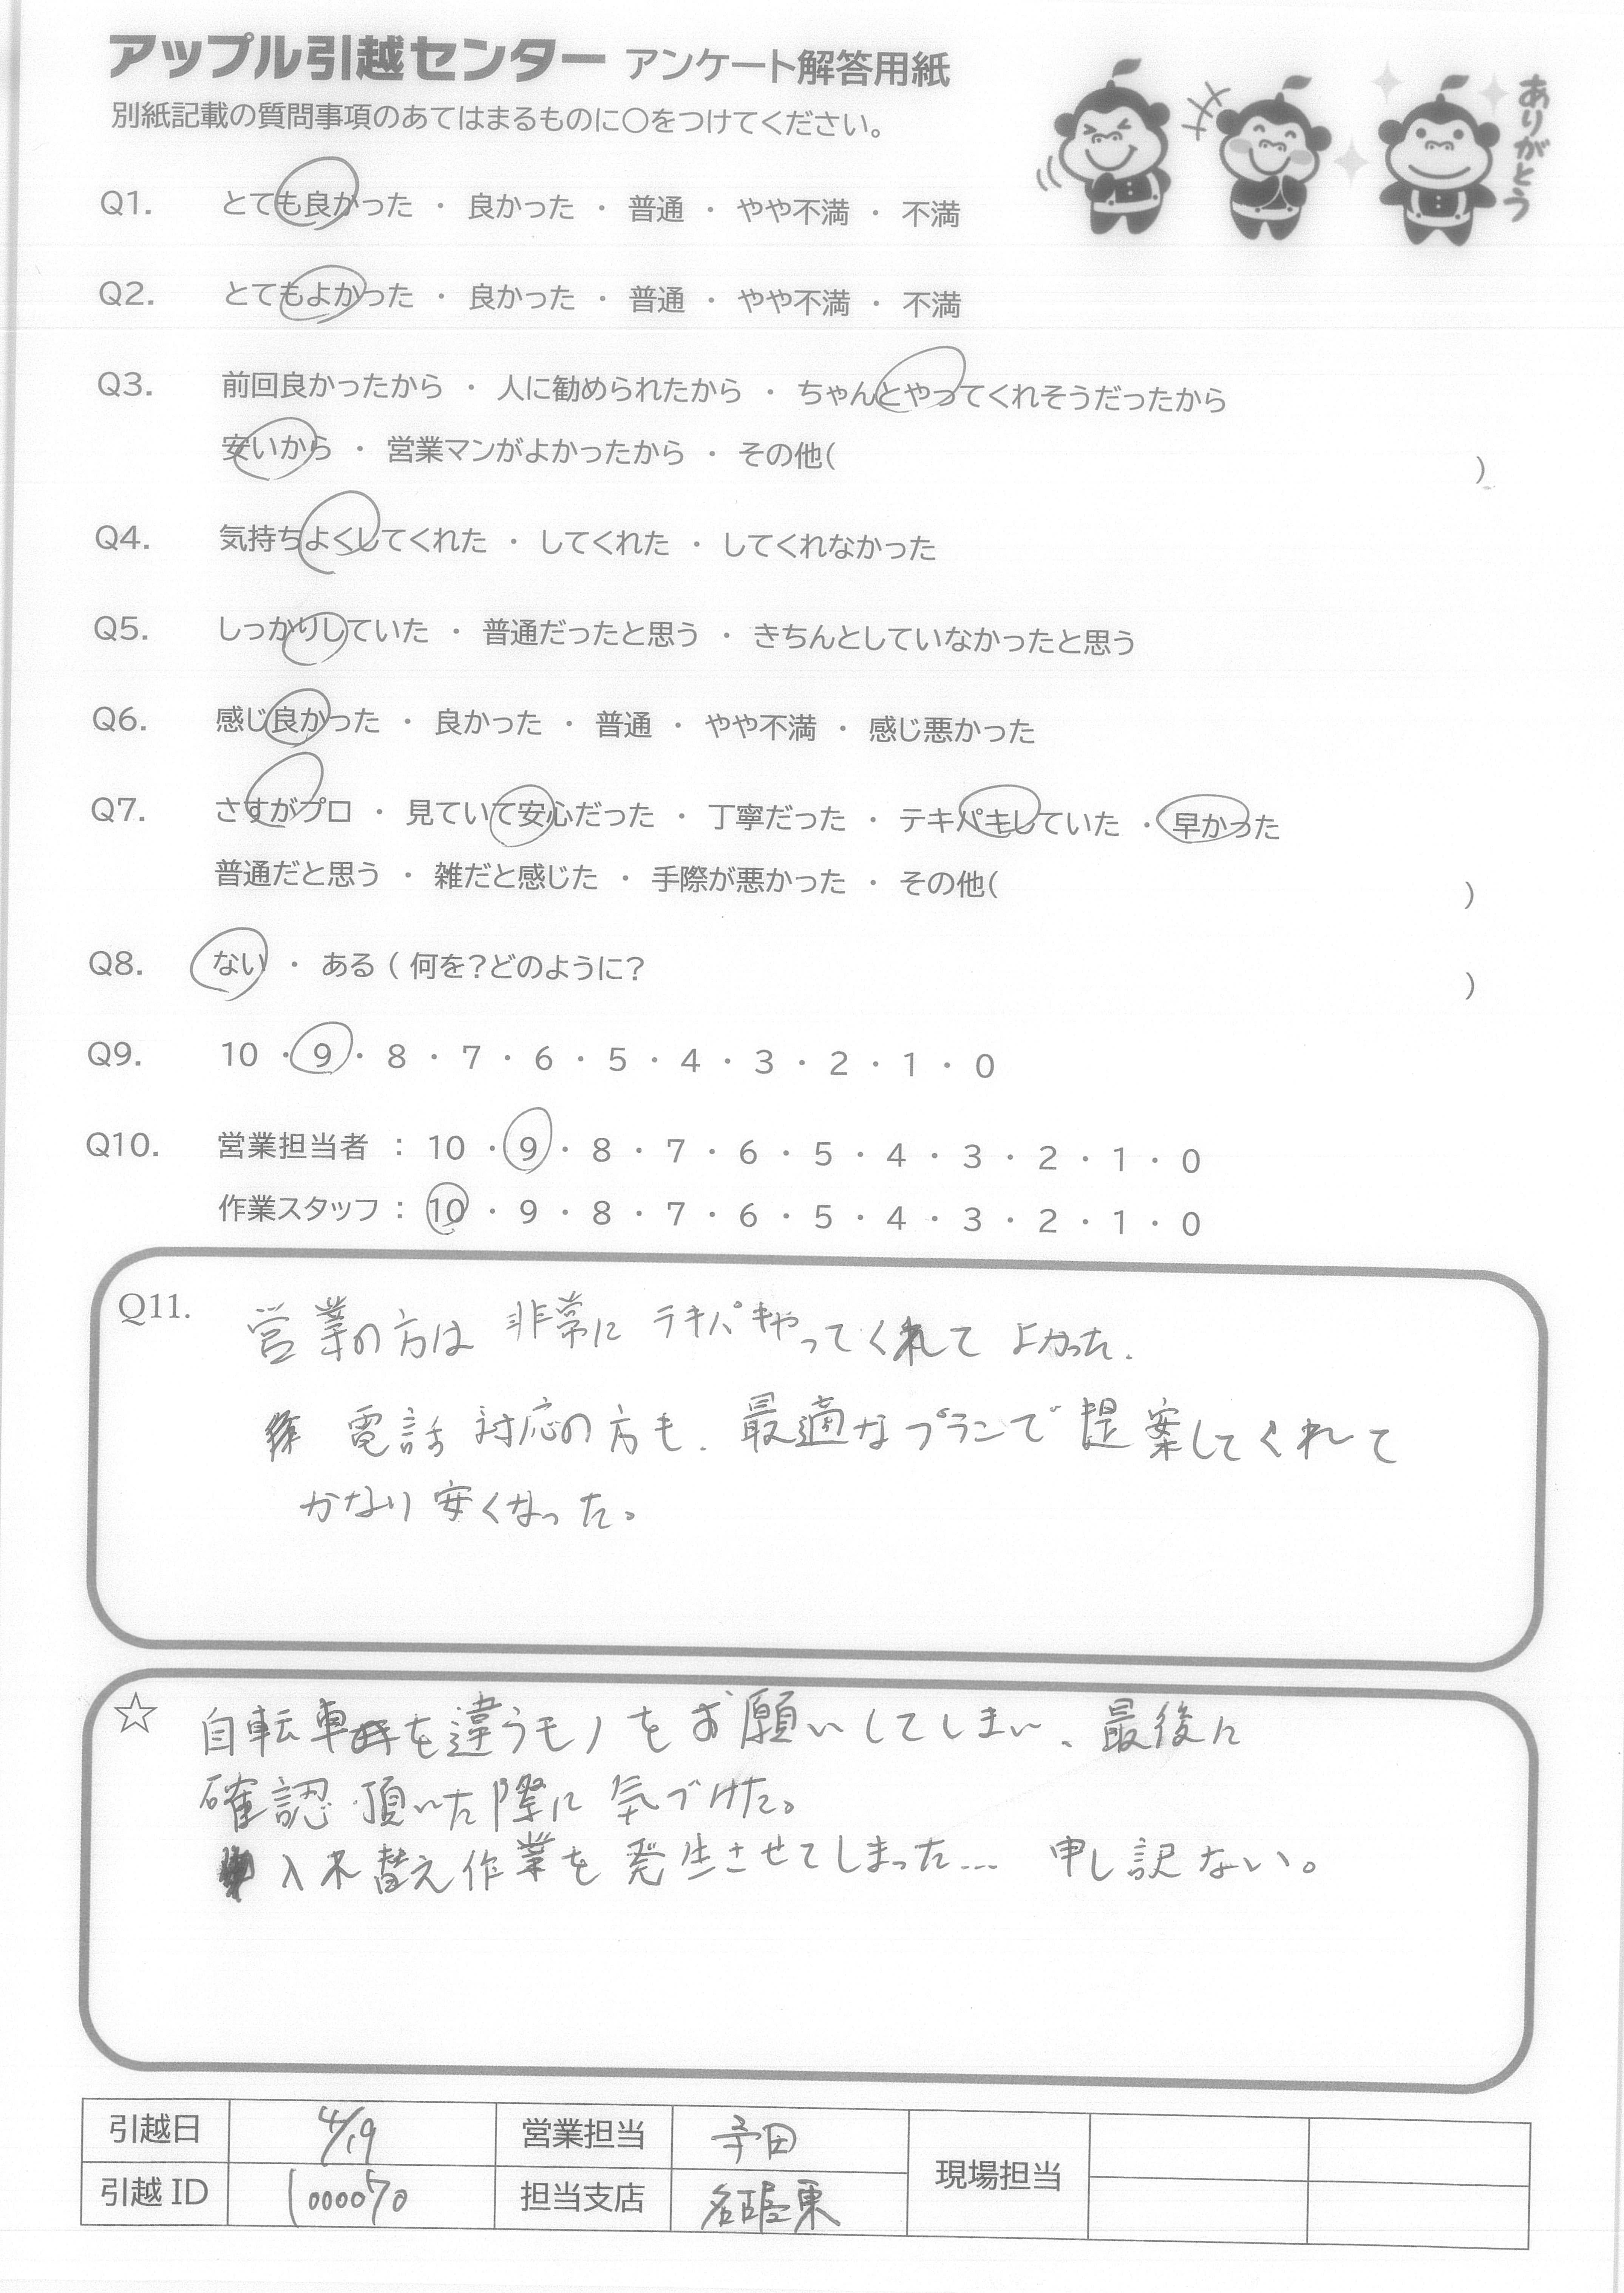 アップル引越センター アンケート解答用紙
ありがとう
別紙記載の質問事項のあてはまるものに○をつけてください。
Q1. とても良かった ・ 良かった ・ 普通 ・ やや不満 ・ 不満
Q2. とてもよかった ・ 良かった ・ 普通 ・ やや不満 ・ 不満
Q3. 前回良かったから ・ 人に勧められたから ・ ちゃんとやってくれそうだったから
安いから ・ 営業マンがよかったから ・ その他( )
Q4. 気持ちよくしてくれた ・ してくれた ・ してくれなかった
Q5. しっかりしていた ・ 普通だったと思う ・ きちんとしていなかったと思う
Q6. 感じ良かった ・ 良かった ・ 普通 ・ やや不満 ・ 感じ悪かった
Q7. さすがプロ ・ 見ていて安心だった ・ 丁寧だった ・ テキパキしていた ・ 早かった
普通だと思う ・ 雑だと感じた ・ 手際が悪かった ・ その他( )
Q8. ない ・ ある ( 何を?どのように? )
Q9. 10 ・ 9 ・ 8 ・ 7 ・ 6 ・ 5 ・ 4 ・ 3 ・ 2 ・ 1 ・ 0
Q10. 営業担当者 : 10 ・ 9 ・ 8 ・ 7 ・ 6 ・ 5 ・ 4 ・ 3 ・ 2 ・ 1 ・ 0
作業スタッフ : 10 ・ 9 ・ 8 ・ 7 ・ 6 ・ 5 ・ 4 ・ 3 ・ 2 ・ 1 ・ 0
Q11. 営業の方は 非常に テキパキやってくれて よかった.
電話対応の方も、最適なプランで提案してくれて
かなり安くなった。
☆ 自転車を違うモノをお願いしてしまい、最後に
確認頂いた際に気づけた。
入れ替え作業を発生させてしまった… 申し訳ない。
引越日 4/19 営業担当 寺田 現場担当
引越 ID 1000070 担当支店 名古屋東